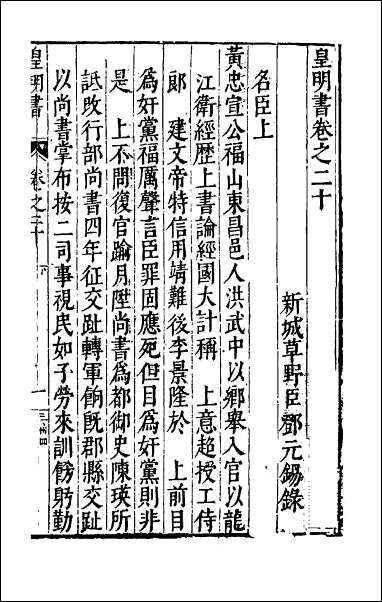 皇明書卷之二十
新城草野臣鄧元錫錄
名臣上
黃忠宣公福山東昌邑人洪武中以鄉舉入官以龍
江衛經歷上書論經國大計稱　上意超授工侍
郎　建文帝特信用靖難後李景隆於　上前目
為奸黨福厲聲言臣罪固應死但目為奸黨則非
是　上不問復官踰月陞尚書為都御史陳瑛所
詆改行部尚書四年征交趾轉軍餉既郡縣交趾
以尚書掌布按二司事視民如子勞來訓飭躬勤
皇明書
卷之二十
一